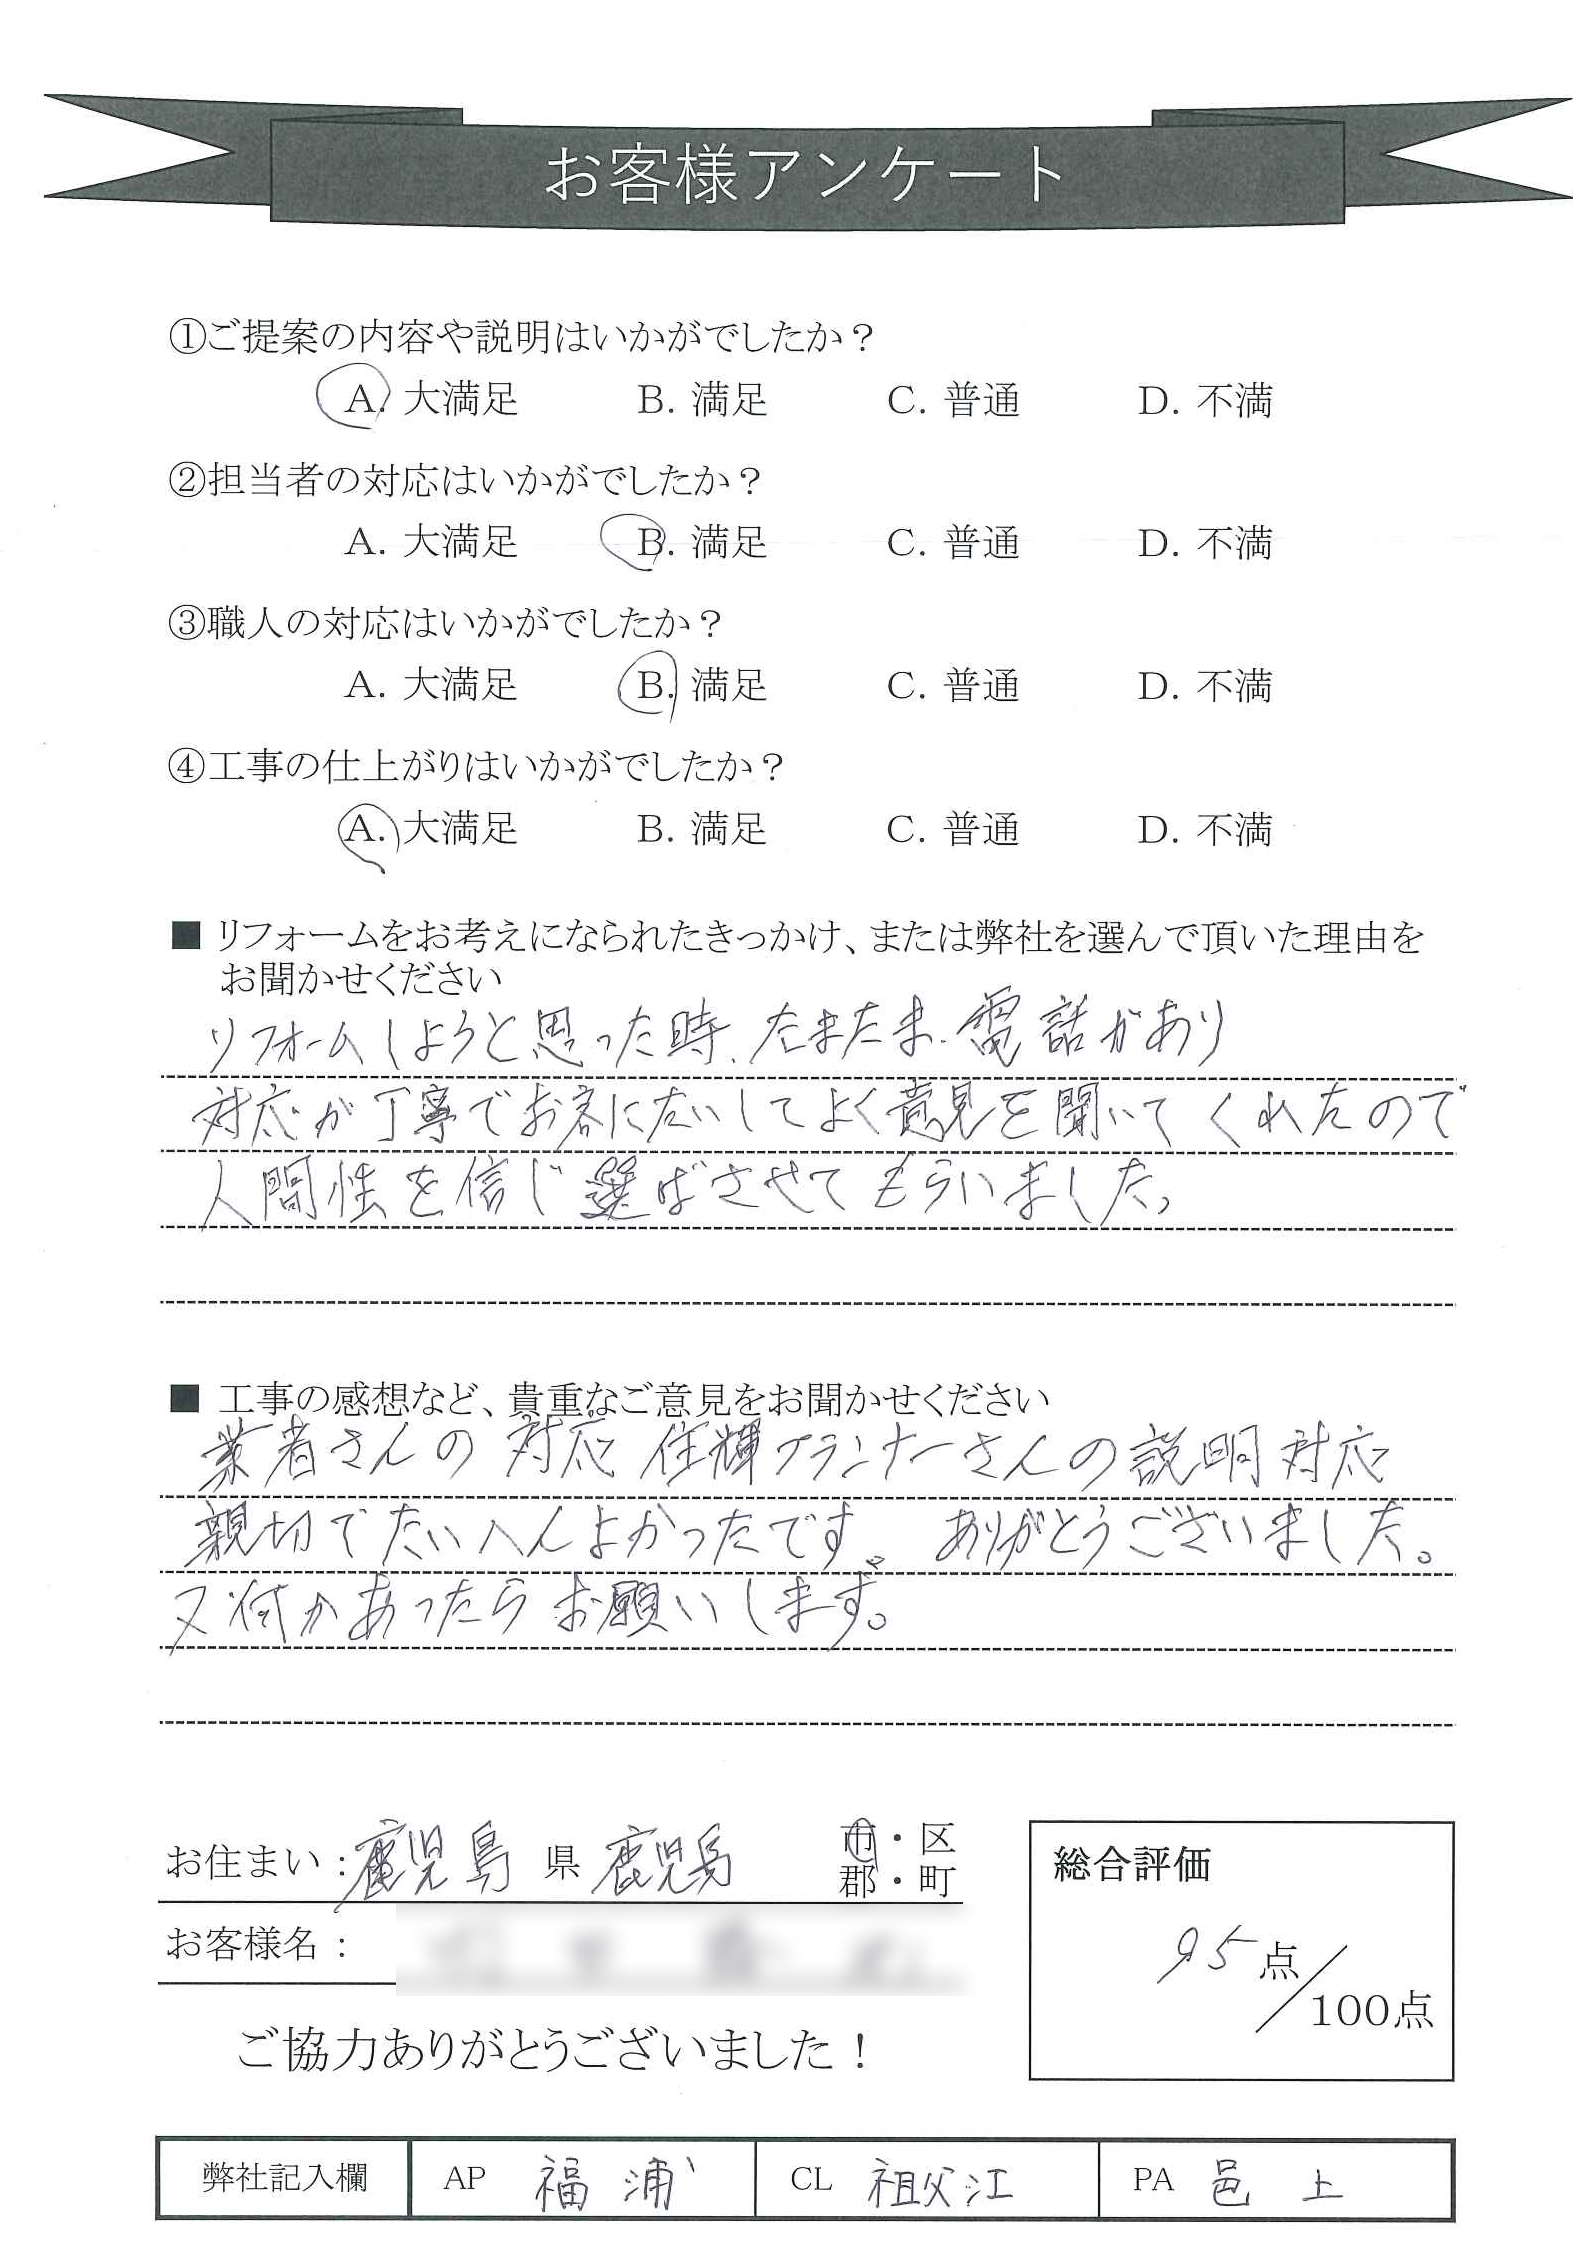 お客様アンケート
①ご提案の内容や説明はいかがでしたか？
A. 大満足 B. 満足 C. 普通 D. 不満
②担当者の対応はいかがでしたか？
A. 大満足 B. 満足 C. 普通 D. 不満
③職人の対応はいかがでしたか？
A. 大満足 B. 満足 C. 普通 D. 不満
④工事の仕上がりはいかがでしたか？
A. 大満足 B. 満足 C. 普通 D. 不満
■ リフォームをお考えになられたきっかけ、または弊社を選んで頂いた理由を
お聞かせください
リフォームしようと思った時、たまたま、電話があり
対応が丁寧でお客にたいしてよく意見を聞いてくれたので
人間性を信じ選ばさせてもらいました。
■ 工事の感想など、貴重なご意見をお聞かせください
業者さんの対応 住輝プランナーさんの説明対応
親切でたいへんよかったです。ありがとうございました。
又何かあったらお願いします。
お住まい：鹿児島 県 鹿児島 市・区
郡・町
お客様名：
総合評価
95点／100点
ご協力ありがとうございました！
弊社記入欄 AP 福浦 CL 祖父江 PA 邑上